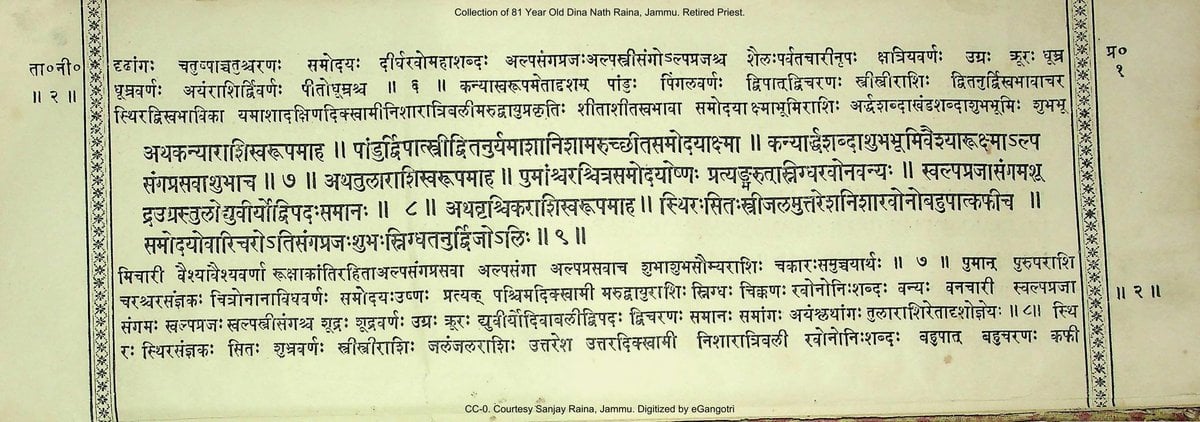 Collection of 81 Year Old Dina Nath Raina, Jammu. Retired Priest.
ता०नी०
॥ २ ॥
प्र०
१
दृढांगः चतुष्पाच्चतुश्चरणः समोदयः दीर्घरवोमहाशब्दः अल्पसंगप्रजःअल्पस्त्रीसंगोऽल्पप्रजश्च शैलःपर्वतचारीनृपः क्षत्रियवर्णः उग्रः क्रूरः धूम्र
धूम्रवर्णः अयंराशिर्द्विवर्णः पीतोधूम्रश्च ॥ ६ ॥ कन्यास्वरूपमेतादृशम् पांडुः पिंगलवर्णः द्विपात्द्विचरणः स्त्रीस्त्रीराशिः द्वितनुर्द्विस्वभावाचर
स्थिरद्विस्वभाविका यमाशादक्षिणदिक्स्वामीनिशारात्रिबलीमरुद्वायुप्रकृतिः शीताशीतस्वभावा समोदयाक्ष्माभूमिराशिः अर्द्धशब्दाखंडशब्दाशुभभूमिः शुभभू
अथकन्याराशिस्वरूपमाह ॥ पांडुर्द्विपात्स्त्रीद्वितनुर्यमाशानिशामरुच्छीतसमोदयाक्ष्मा ॥ कन्यार्द्धशब्दाशुभभूमिवैश्यारूक्ष्माऽल्प
संगप्रसवाशुभाच ॥ ७ ॥ अथतुलाराशिस्वरूपमाह ॥ पुमांश्चरश्चित्रसमोदयोष्णः प्रत्यङ्मरुत्स्निग्धरवोनवन्यः ॥ स्वल्पप्रजासंगमशू
द्रउग्रस्तुलोद्युवीर्योद्विपदःसमानः ॥ ८ ॥ अथवृश्चिकराशिस्वरूपमाह ॥ स्थिरःसितःस्त्रीजलमुत्तरेशनिशारवोनोबहुपात्कफीच ॥
समोदयोवारिचरोऽतिसंगप्रजःशुभःस्निग्धतनुर्द्विजोऽलिः ॥ ९ ॥
मिचारी वैश्यावैश्यवर्णा रूक्षाकांतिरहिताअल्पसंगप्रसवा अल्पसंगा अल्पप्रसवाच शुभाशुभसौम्यराशिः चकारःसमुच्चयार्थः ॥ ७ ॥ पुमान् पुरुषराशि
चरश्चरसंज्ञकः चित्रोनानाविधवर्णः समोदयःउष्णः प्रत्यक् पश्चिमदिक्स्वामी मरुद्वायुराशिः स्निग्धः चिक्कणः रवोनोनिःशब्दः वन्यः वनचारी स्वल्पप्रजा
संगमः स्वल्पप्रजःस्वल्पस्त्रीसंगश्च शूद्रः शूद्रवर्णः उग्रः क्रूरः द्युवीर्योदिवाबलीद्विपदः द्विचरणः समानः समांगः अयंश्लथांगःतुलाराशिरेतादृशोज्ञेयः ॥ ८॥ स्थि
रः स्थिरसंज्ञकः सितः शुभ्रवर्णः स्त्रीस्त्रीराशिः जलंजलराशिः उत्तरेश उत्तरदिक्स्वामी निशारात्रिबली रवोनोनिःशब्दः बहुपात् बहुचरणः कफी
॥ २ ॥
CC-0. Courtesy Sanjay Raina, Jammu. Digitized by eGangotri